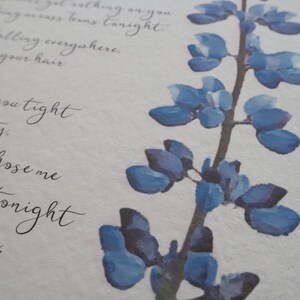 got nothing on you
across Texas tonight
falling everywhere,
your hair
you tight
chose me
tonight